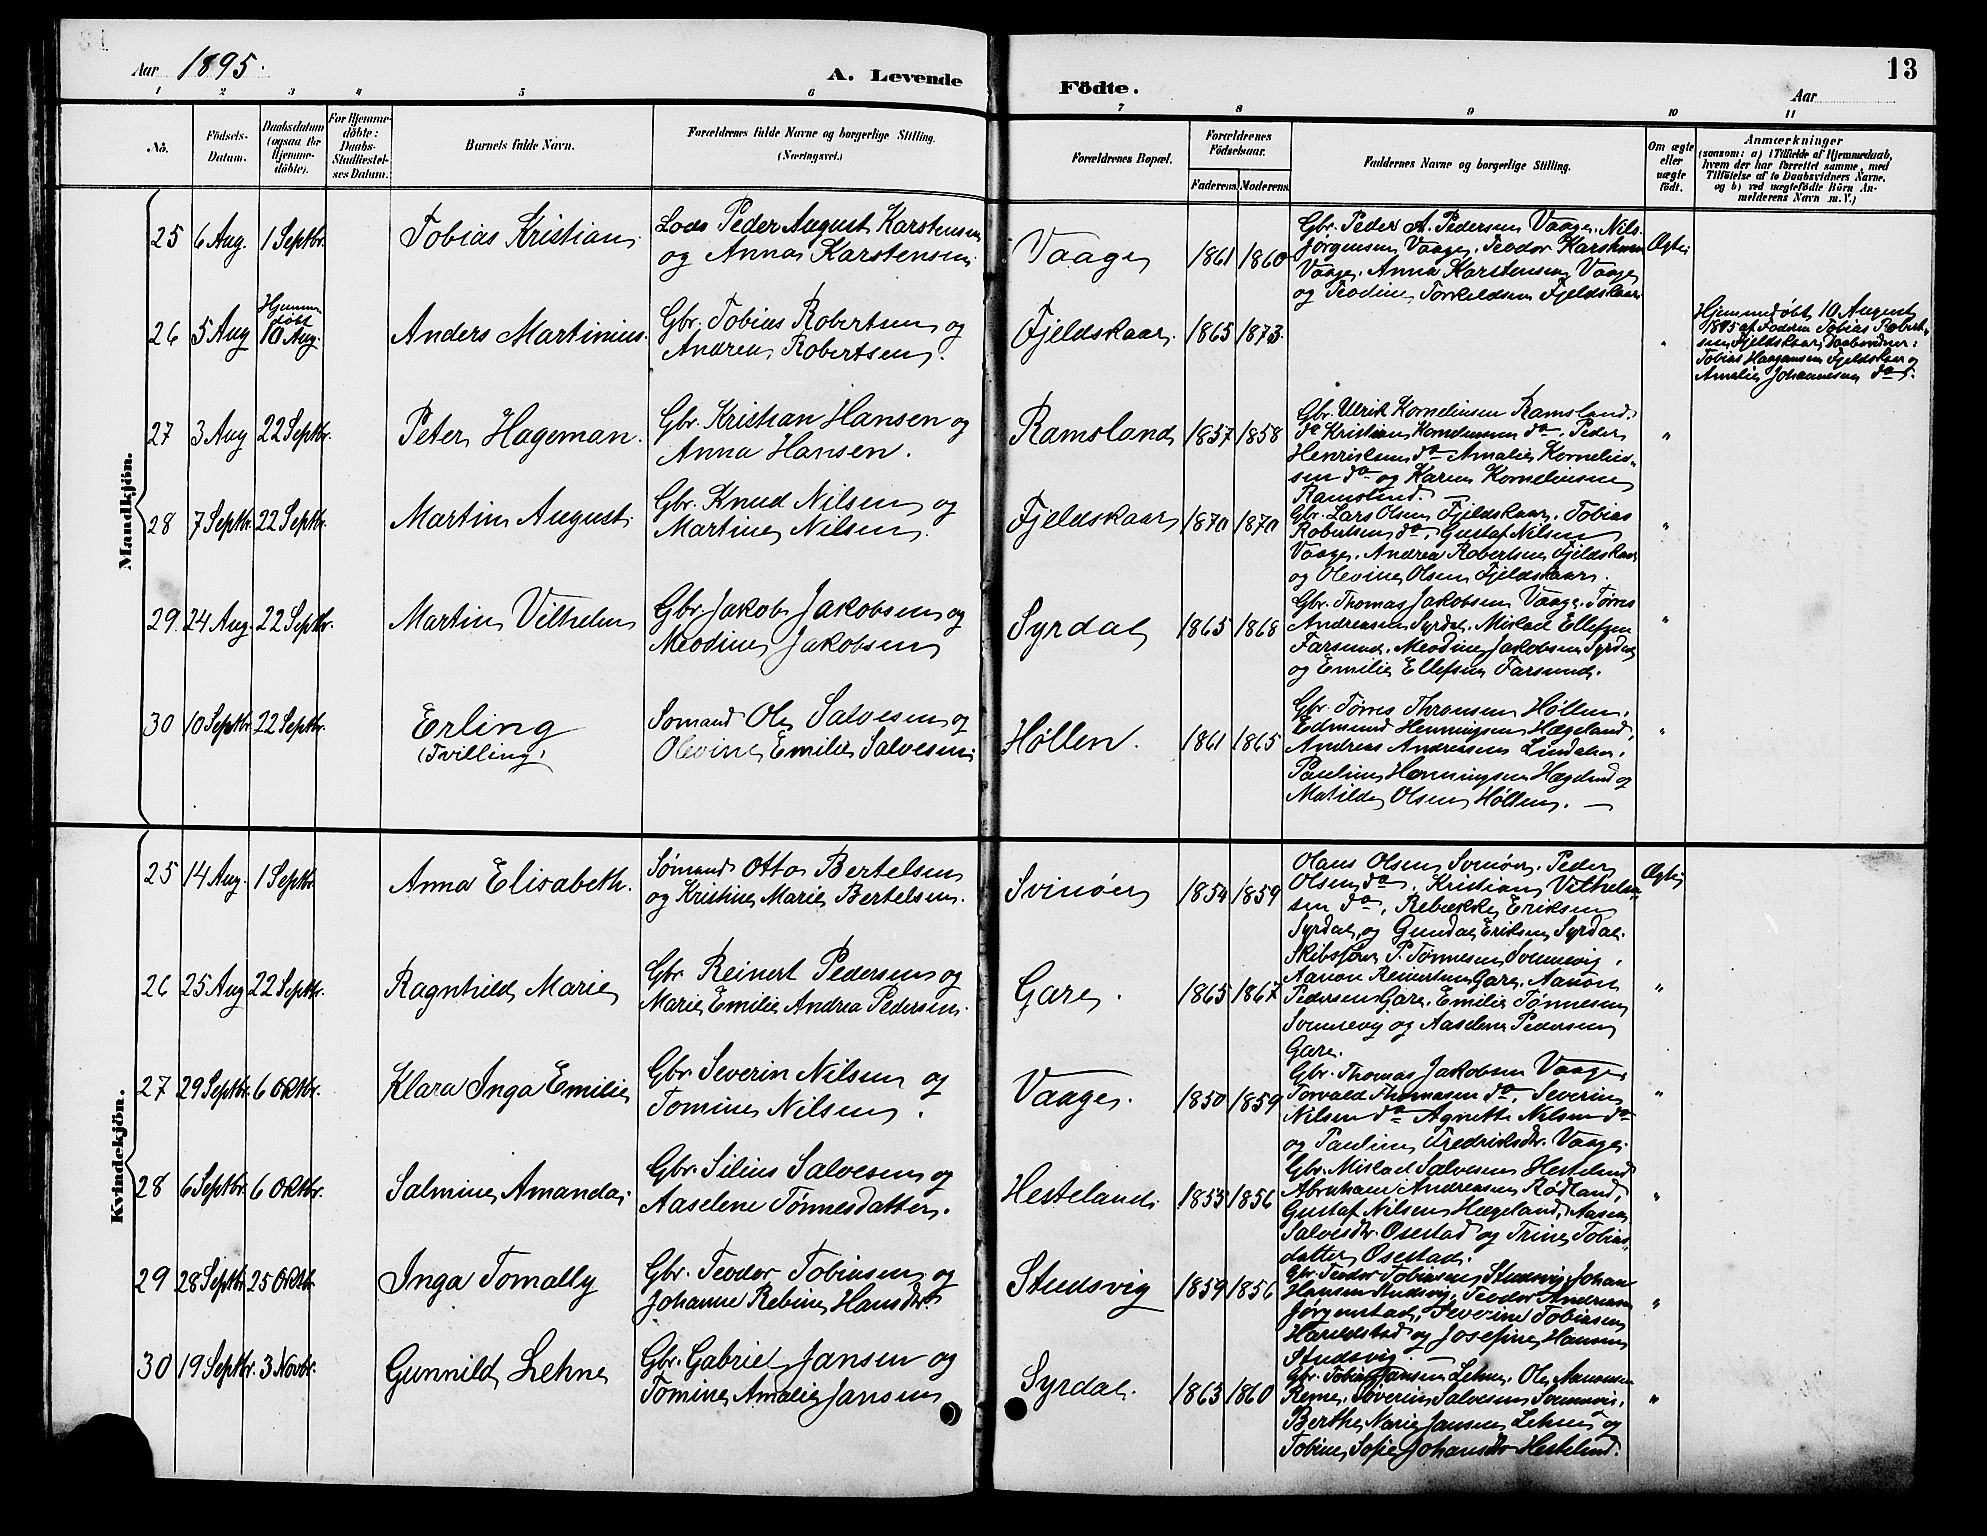 Aar 1895.
A. Levende
Födte.
Aar
13
1 2 3 4 5 6 7 8 9 10 11
No.
Födsels-
Datum.
Daabsdatum
(ogsaa for
Hjemme-
döbte).
For Hjemme-
döbte:
Daabs-
Stadfæstel-
ses Datum.
Barnets fulde Navn.
Forældrenes fulde Navne og borgerlige Stilling.
(Næringsvei.)
Forældrenes Bopæl.
Forældrenes
Födselsaar.
Faderens. Moderens.
Faddernes Navne og borgerlige Stilling.
Om ægte
eller
uægte
födt.
Anmærkninger
(saasom: a) i Tilfælde af Hjemmedaab,
hvem der har forrettet samme, med
Tilföielse af to Daabsvidners Navne,
og b) ved uægtefödte Börn An-
melderens Navn m.V.)
Mandkjön.
25 6 Aug. 1 Septbr. Tobias Kristian.
Lods Peder August Karstensen
og Anna Karstensen.
Vaage 1861 1860
Gbr. Peder A. Pedersen Vaage, Nils
Jørgensen Vaage, Teodor Karstensen
Vaage, Anna Karstensen Vaage
og Teodine Torkildsen Fjeldskaar
Ægte
26 5 Aug Hjemme
døbt
10 Aug. Anders Martinius.
Gbr. Tobias Robertsen og
Andrea Robertsen.
Fjeldskaar. 1865 1873. "
Hjemmedøbt 10 August
1895 af Faderen Tobias Robert-
sen Fjeldskaar, Daabsvidner:
Tobias Haagensen Fjeldskaar og
Amalie Johannesen do.
27 3 Aug 22 Septbr. Peter Hageman.
Gbr. Kristian Hansen og
Anna Hansen.
Ramsland 1857 1858
Gbr. Ulrik Kornelinsen Ramsland,
do Kristian Kornelinsen do, Peder
Henriksen do Amalie Kornelius-
sen do og Karen Kornelinsen
Ramsland. "
28 7 Septbr. 22 Septbr. Martin August.
Gbr. Knud Nilsen og
Martine Nilsen.
Fjeldskaar 1870 1870
Gbr. Lars Olsen Fjeldskaar, Tobias
Robertsen do, Gustaf Nilsen
Vaage, Andrea Robertsen Fjeldskaar
og Olevine Olsen Fjeldskaar. "
29. 24 Aug. 22 Septbr. Martin Vilhelm
Gbr. Jakob Jakobsen og
Meodine Jakobsen
Syrdal 1865 1868
Gbr. Thomas Jakobsen Vaage, Tørres
Andreasen Syrdal, Mikael Ellefsen
Farsund, Meodine Jakobsen Syrdal
og Emilie Ellefsen Farsund. "
30 10 Septbr. 22 Septbr. Erling
(Tvilling)
Sømand Ole Salvesen og
Olevine Emilie Salvesen
Høllen. 1861 1865
Gbr. Tørres Thronsen Høllen,
Edmund Henningsen Hægeland,
Andreas Andreasen Lindalen,
Pauline Henningsen Hægeland og
Matilde Olsen Høllen. — "
Kvindekjön.
25 14 Aug. 1 Septbr. Anna Elisabeth.
Sømand Otto Bertelsen
og Kristine Marie Bertelsen.
Svinøer 1854 1859
Olaus Olsen Svinøer, Peder
Olsen do, Kristian Vilhelm-
sen do, Rebekke Eriksen
Syrdal, og Gunda Eriksen Syrdal.
Ægte
26 25 Aug 22 Septbr. Ragnhild Marie
Gbr Reinert Pedersen og
Marie Emilie Andrea Pedersen.
Gare. 1865 1867
Skibsfører P. Tønnesen Svennevig,
Aanon Reinertsen Gare, Aanon
Pedersen Gare, Emilie Tønnesen
Svennevig og Aaselene Pedersen
Gare. "
27 29 Septbr. 6 Oktbr. Klara Inga Emilie
Gbr Severin Nilsen og
Tomine Nilsen.
Vaage. 1850 1859
Gbr. Thomas Jakobsen Vaage,
Torvald Thomasen do, Severin
Nilsen do Agnette Nilsen do
og Pauline Fredriksdtr. Vaage. "
28 6 Septbr. 6 Oktbr. Salmine Amanda.
Gbr. Silius Salvesen og
Aaselene Tønnesdatter.
Hesteland. 1853 1856
Gbr. Mikael Salvesen Hesteland
Abraham Andreasen Rødland,
Gustaf Nilsen Hægeland, Aasen
Salvesdtr. Osestad og Trine Tobias-
datter Osestad. "
29 28 Septbr 25 Oktbr. Inga Tomally
Gbr. Teodor Tobiasen og
Johanne Rebine Hansdtr.
Studsvig 1859 1856
Gbr Teodor Tobiasen Studsvig, Johan
Hansen Studsvig, Teodor Andreasen
Jørgenstad, Severine Tobiasen
Hareldstad og Josefine Hansen
Studsvig. — "
30 19 Septbr. 3 Novbr. Gunnild Lehne
Gbr. Gabriel Jansen og
Tomine Amalie Jansen
Syrdal. 1863 1860
Gbr. Tobias Jansen Lehne, Ole Aanonsen
Reme, Severin Salvesen Svennevig,
Berthe Marie Jansen Lehne og
Tobine Sofie Johansdtr Hesteland. "